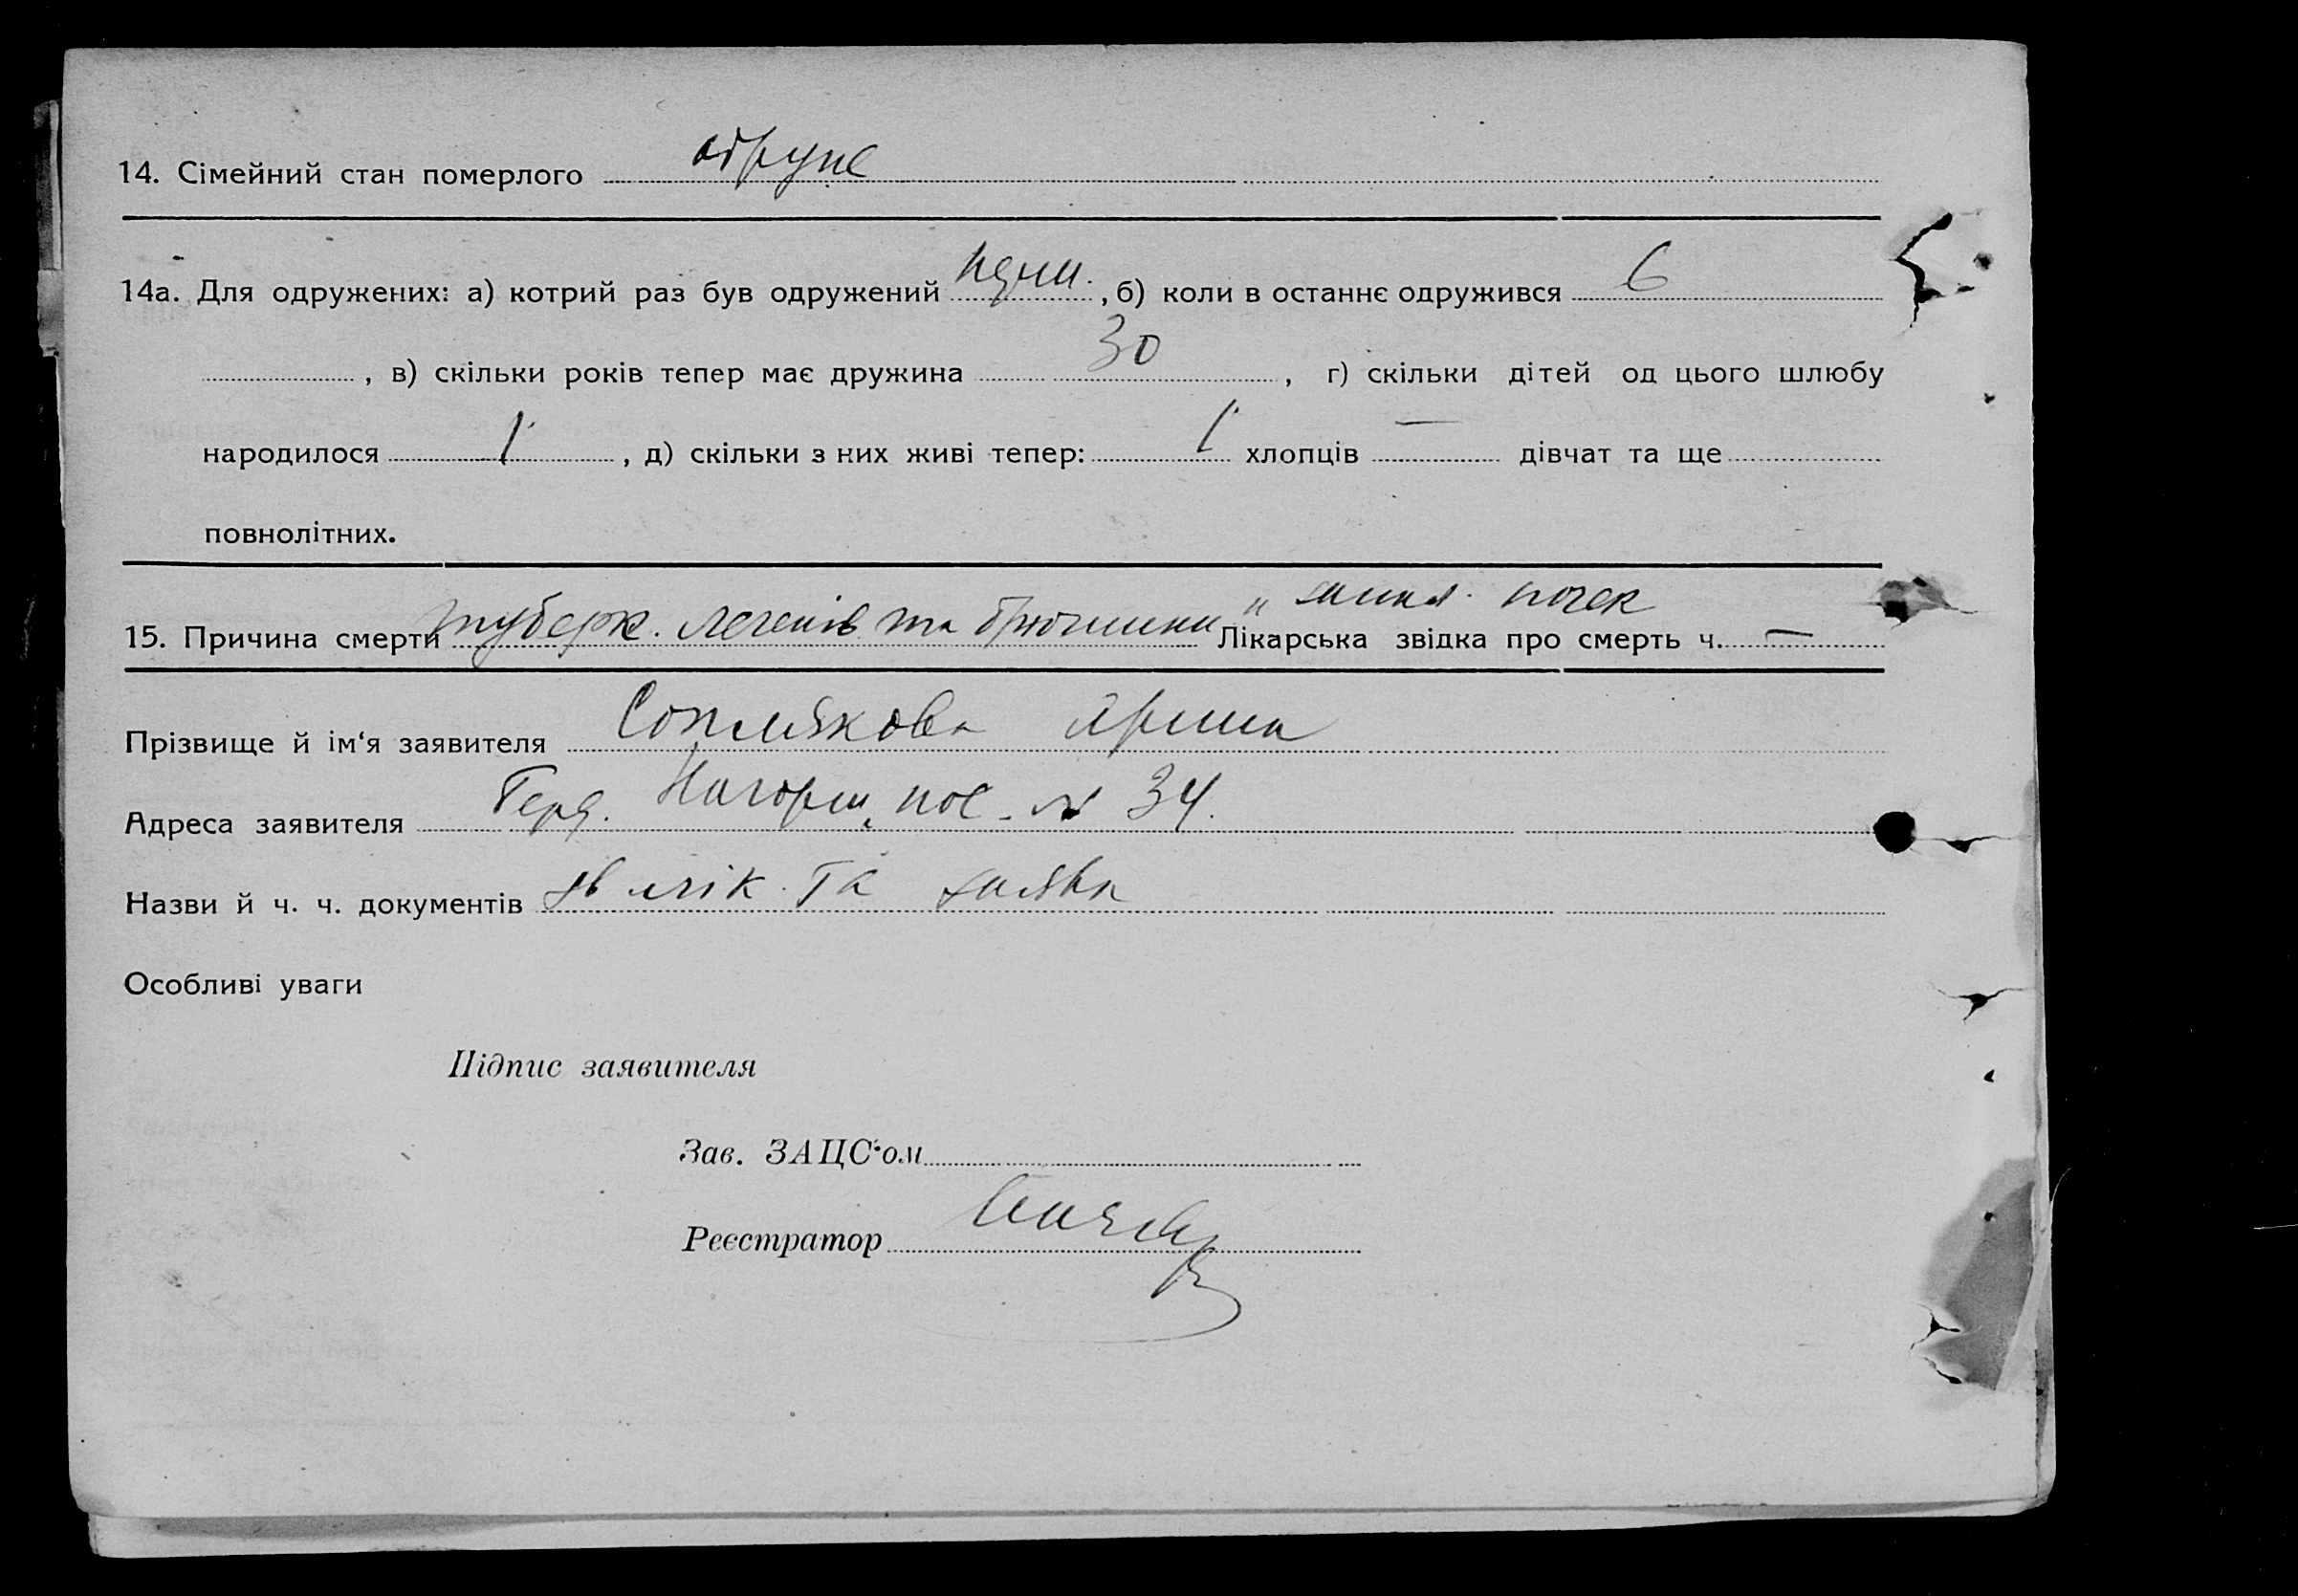 14. Сімейний стан померлого одруже
14а. Для одружених: а) котрий раз був одружений перш. , б) коли в останнє одружився 6
, в) скільки років тепер має дружина 30 , г) скільки дітей од цього шлюбу
народилося 1 , д) скільки з них живі тепер: 1 хлопців — дівчат та ще
повнолітних.
15. Причина смерти туберк. легенів та брюшини и почек Лікарська звідка про смерть ч. —
Прізвище й ім‘я заявителя Соплякова Ярина
Адреса заявителя Нагорн. пос. № 34.
Назви й ч. ч. документів лік. та заява
Особливі уваги
Підпис заявителя
Зав. ЗАЦС‘ом
Реєстратор